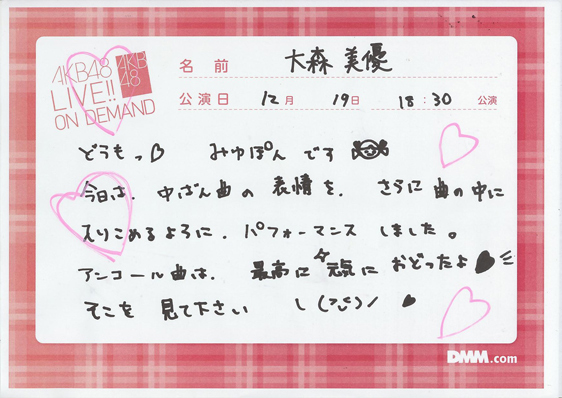 AKB48
LIVE!!
ON DEMAND
AKB
48
名前 大森 美優
公演日 12月 19日 18:30 公演
どうもっ♡ みゆぽん です
今日は、中ばん曲の表情を、さらに曲の中に
入りこめるように、パフォーマンスしました。
アンコール曲は、最高に元気におどったよ♥
そこを見て下さい
DMM.com